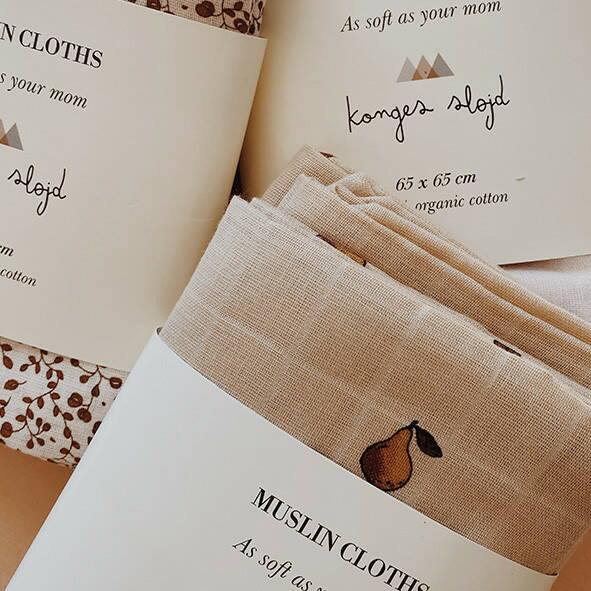 N CLOTHS
s your mom
sløjd
cm
cotton
As soft as your mom
konges sløjd
65 x 65 cm
organic cotton
MUSLIN CLOTHS
As soft as